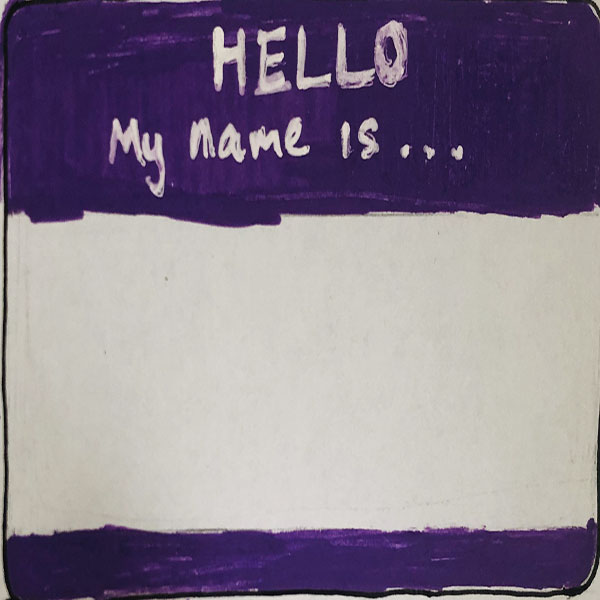 HELLO
My name is...